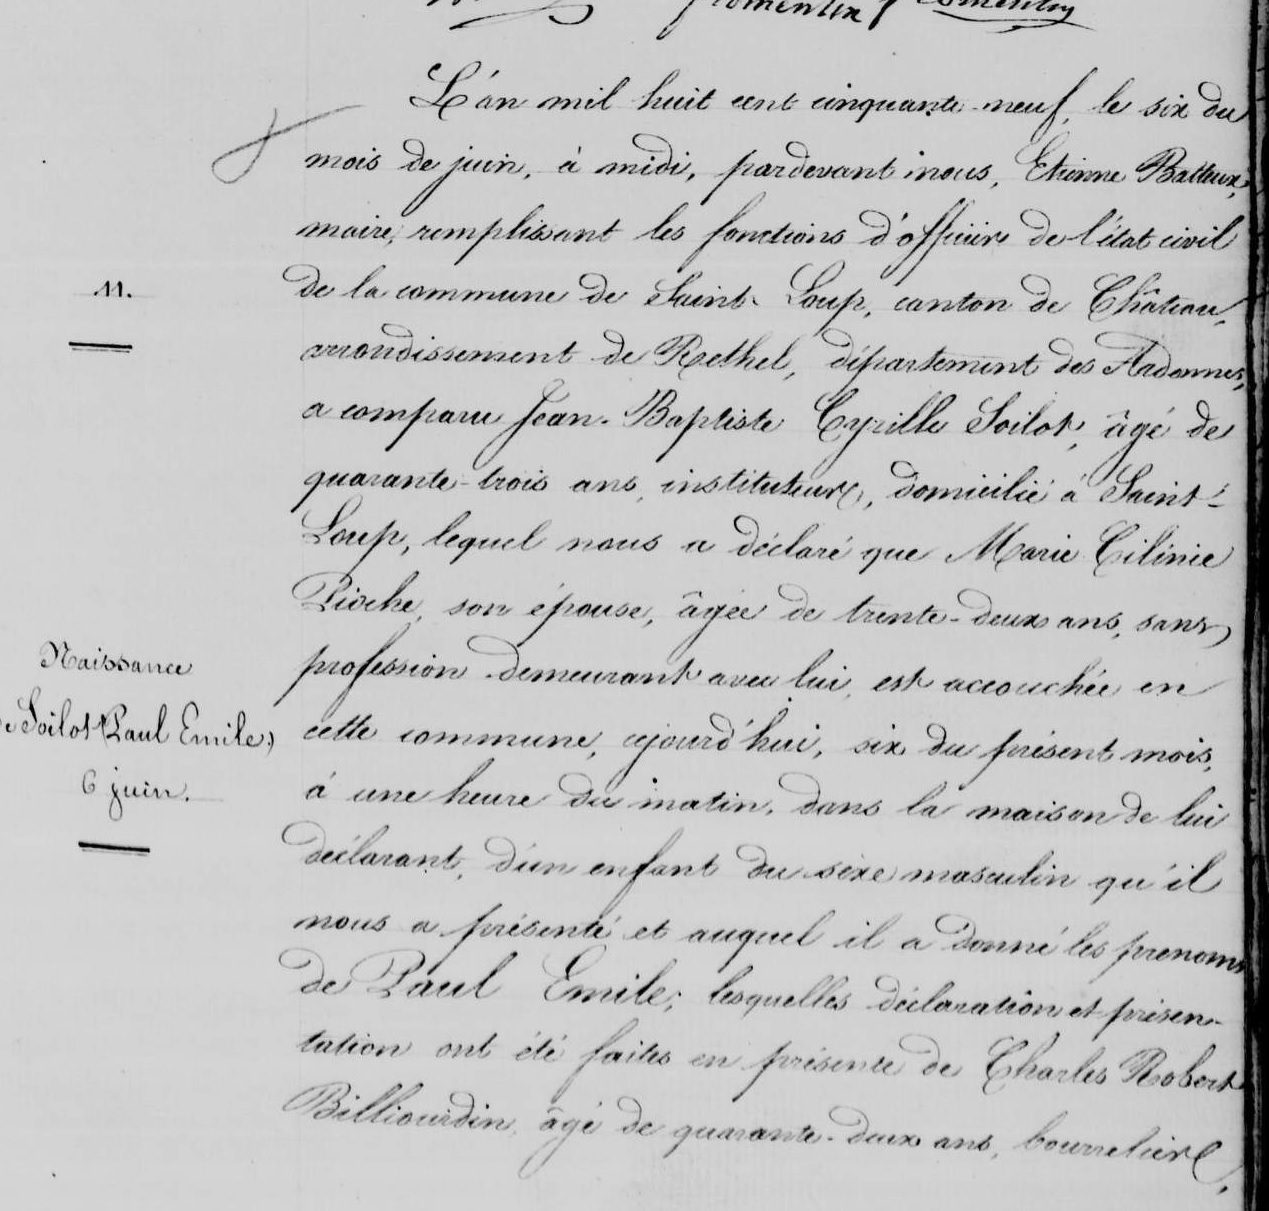 fromentin fromentin
L'an mil huit cent cinquante-neuf, le six du
mois de juin, à midi, pardevant nous, Etienne Batteux,
maire, remplissant les fonctions d'officier de l'état civil
de la commune de Saint-Loup, canton de Château,
11.
arrondissement de Rethel, département des Ardennes,
a comparu Jean-Baptiste Cyrille Soilot, âgé de
quarante-trois ans, instituteur, domicilié à Saint-
Loup, lequel nous a déclaré que Marie Cilinie
Pioche, son épouse, âgée de trente-deux ans, sans
profession demeurant avec lui, est accouchée en
cette commune, cejourd'hui, six du présent mois,
à une heure du matin, dans la maison de lui
déclarant, d'un enfant du sexe masculin qu'il
nous a présenté et auquel il a donné les prenoms
de Paul Emile; lesquelles déclaration et présen-
tation ont été faites en présence de Charles Robert
Billiourdin, âgé de quarante-deux ans, bourrelier,
Naissance
Soilot (Paul Emile)
6 juin.